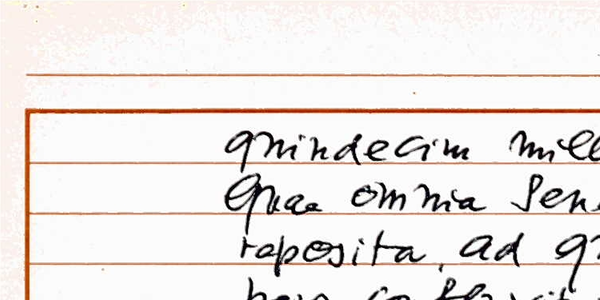 quindecim mille
Quae omnia Sen
reposita, ad q